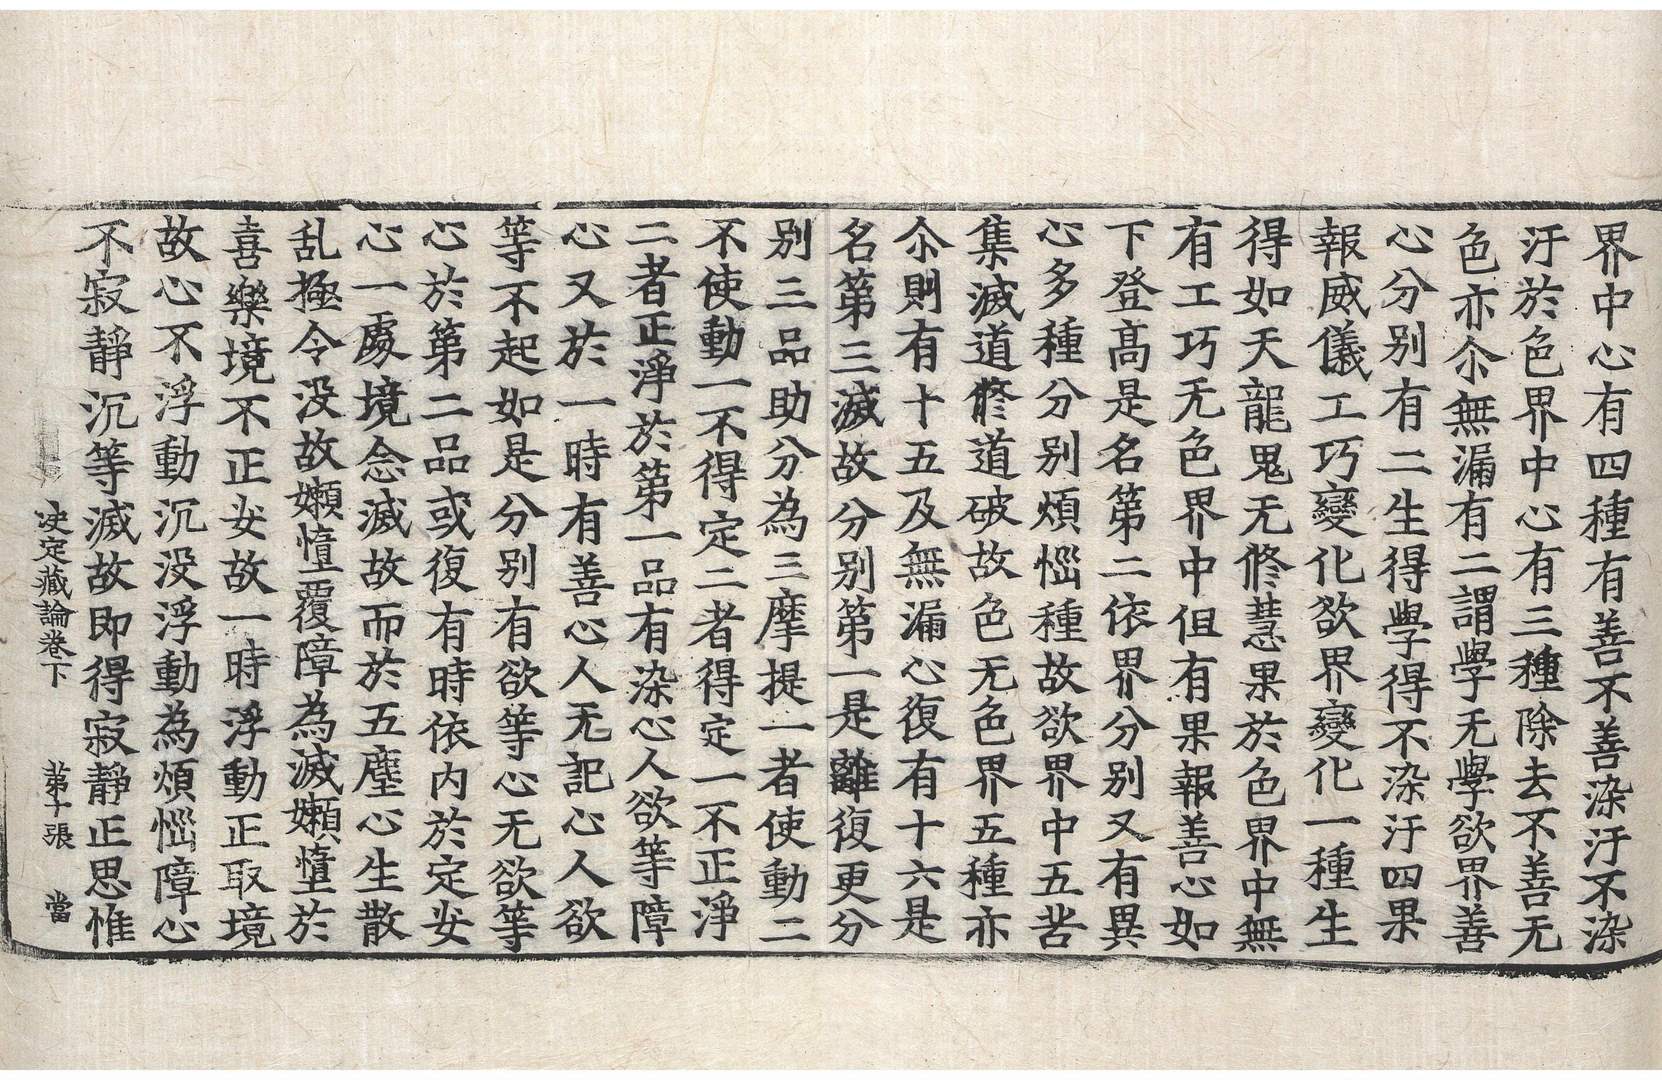 界中心有四種有善不善染汙不染
汙於色界中心有三種除去不善无
色亦尒無漏有二謂學无學欲界善
心分別有二生得學得不染汙四果
報威儀工巧變化欲界變化一種生
得如天龍鬼无修慧果於色界中無
有工巧无色界中但有果報善心如
下登高是名第二依界分別又有異
心多種分別煩惱種故欲界中五苦
集滅道修道破故色无色界五種亦
尒則有十五及無漏心復有十六是
名第三滅故分別第一是離復更分
別三品助分為三摩提一者使動二
不使動一不得定二者得定一不正淨
二者正淨於第一品有染心人欲等障
心又於一時有善心人无記心人欲
等不起如是分別有欲等心无欲等
心於第二品或復有時依內於定安
心一處境念滅故而於五塵心生散
乱極令沒故嬾憧覆障為滅嬾憧於
喜樂境不正安故一時浮動正取境
故心不浮動沉沒浮動為煩惱障心
不寂靜沉等滅故即得寂靜正思惟
决定藏論卷下 第十張 當